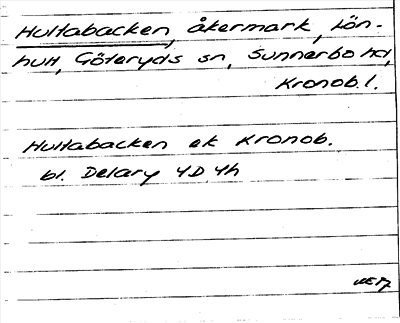 Hultabacken, åkermark, Lön-
hult, Göteryds sn, Sunnerbo hd,
Kronob. l.
Hultabacken ek Kronob.
bl. Delary 4D 4h